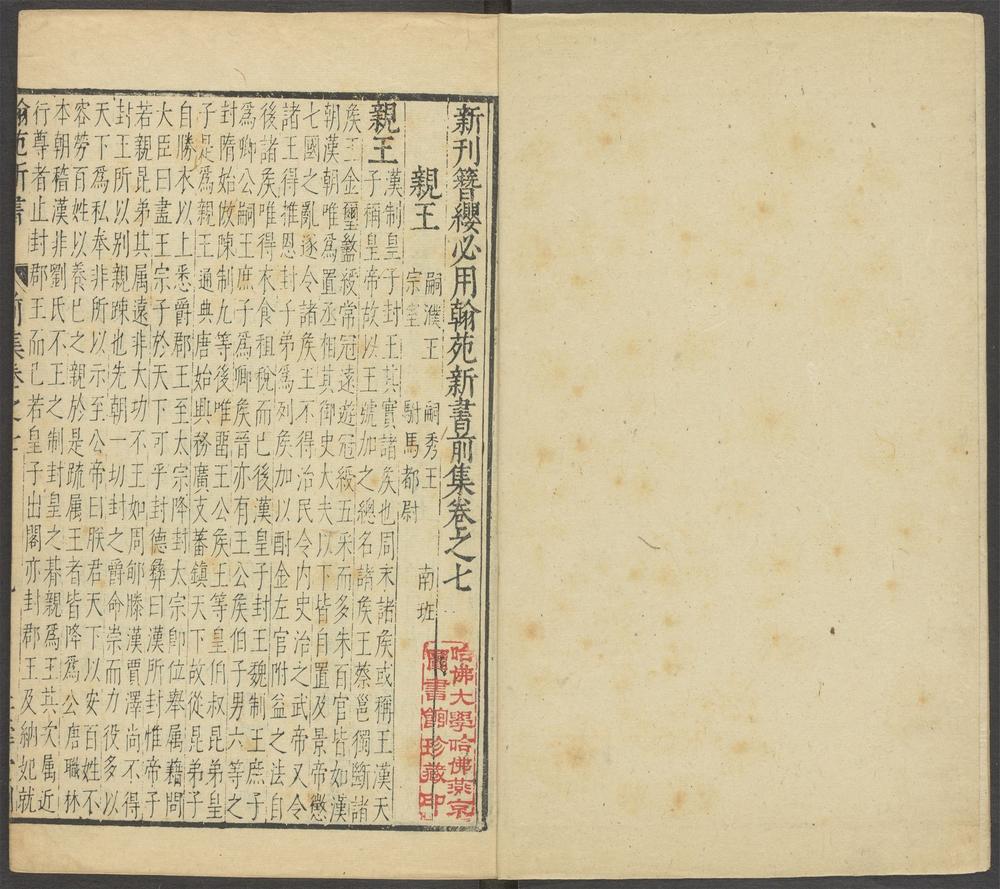 新刊簪纓必用翰苑新書前集卷之七
親王
嗣濮王　嗣秀王　南班
宗室　駙馬都尉
哈佛大學哈佛燕京
圖書館珍藏印
親王
漢制皇子封王其實諸矦也周末諸矦或稱王漢天
子稱皇帝故以王號加之緫名諸矦王蔡邕獨斷諸
矦王金璽盭綬常冠遠遊冠綬五采而多朱百官皆如漢
朝漢朝唯爲置丞相其御史大夫以下皆自置及景帝懲
七國之亂遂令諸矦王不得治民令内史治之武帝又令
諸王得推恩封子弟爲列矦加以酎金左官附益之法自
後諸矦唯得衣食租稅而已後漢皇子封王魏制王庶子
爲卿公嗣王庶子爲卿矦晉亦有王公矦伯子男六等之
封隋始倣陳制九等後唯畱王公矦王等皇伯叔昆弟皇
子是爲親王通典唐始興務廣支蕃鎮天下故從昆弟子
自勝衣以上悉爵郡王至太宗降封太宗即位舉属籍問
大臣曰盡王宗子於天下可乎封德彝曰漢所封惟帝子
若親昆弟其属遠非大功不王如周郇滕漢賈澤尚不得
封王所以别親踈也先朝一切封之爵命崇而力役多以
天下爲私奉非所以示至公帝曰朕君天下以安百姓不
容勞百姓以養己之親於是疏属王者皆降爲公唐職林
本朝稽漢非劉氏不王之制封皇之朞親爲王其次属近
行尊者止封郡王而已若皇子出閣亦封郡王及納妃就